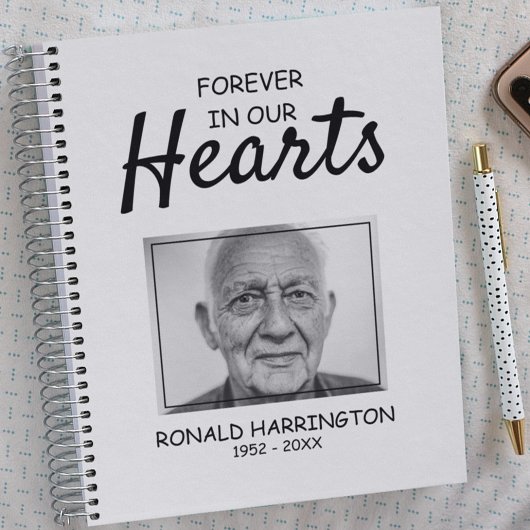 FOREVER
IN OUR
Hearts
RONALD HARRINGTON
1952 - 20XX